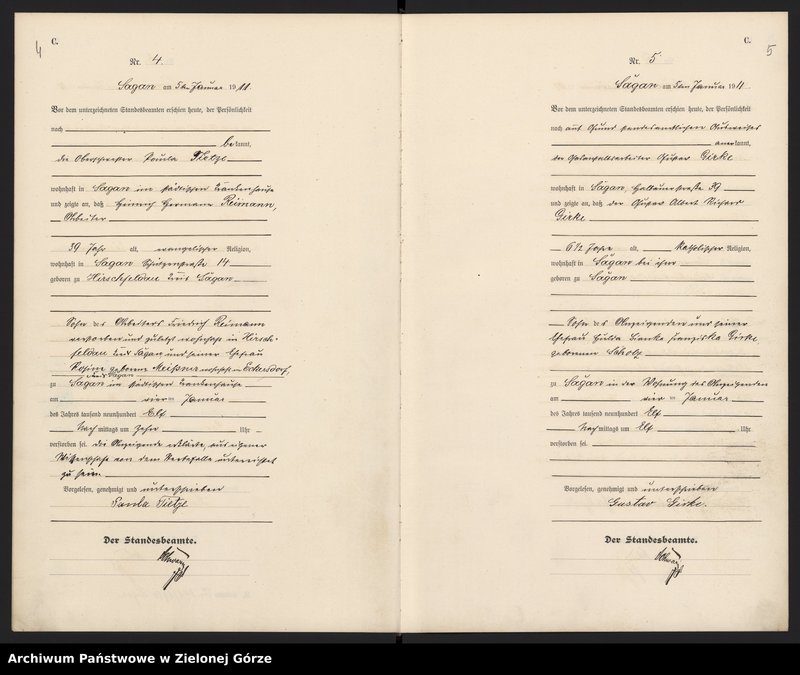 4
C.
Nr. 4.
Sagan am 5ten Januar 1911.
Vor dem unterzeichneten Standesbeamten erschien heute, der Persönlichkeit
nach
bekannt,
die Oberschwester Paula Tietze
wohnhaft in Sagan im städtischen Krankenhause
und zeigte an, daß Heinrich Hermann Reimann,
Arbeiter
39 Jahr alt, evangelischer Religion,
wohnhaft in Sagan Schützenstraße 14
geboren zu Hirschfeldau Kreis Sagan
Sohn des Arbeiters Friedrich Reimann
verstorben und zuletzt wohnhaft in Hirsch-
feldau Kreis Sagan und seiner Ehefrau
Rosine geborene Meißner wohnhaft in Eckersdorf,
Kreis Sagan
zu Sagan im städtischen Krankenhause
am vierten Januar
des Jahres tausend neunhundert Elf
Nachmittags um Zehn Uhr
verstorben sei. Die Anzeigende erklärte, aus eigener
Wissenschaft von dem Sterbefalle unterrichtet
zu sein.
Vorgelesen, genehmigt und unterschrieben
Paula Tietze
Der Standesbeamte.
5
C.
Nr. 5
Sagan am 5ten Januar 1911.
Vor dem unterzeichneten Standesbeamten erschien heute, der Persönlichkeit
nach auf Grund standesamtlichen Ausweises
anerkannt,
der Gustav Girke
wohnhaft in Sagan, 39
und zeigte an, daß der Gustav Albert Richard
Girke
6 1/2 Jahre alt, katholischer Religion,
wohnhaft in Sagan bei ihm
geboren zu Sagan
Sohn des Anzeigenden und seiner
Ehefrau Hulda Franziska Girke
geborenen Scholz
zu Sagan in der Wohnung des Anzeigenden
am vierten Januar
des Jahres tausend neunhundert Elf
Nachmittags um Elf Uhr
verstorben sei.
Vorgelesen, genehmigt und unterschrieben
Gustav Girke.
Der Standesbeamte.
Archiwum Państwowe w Zielonej Górze